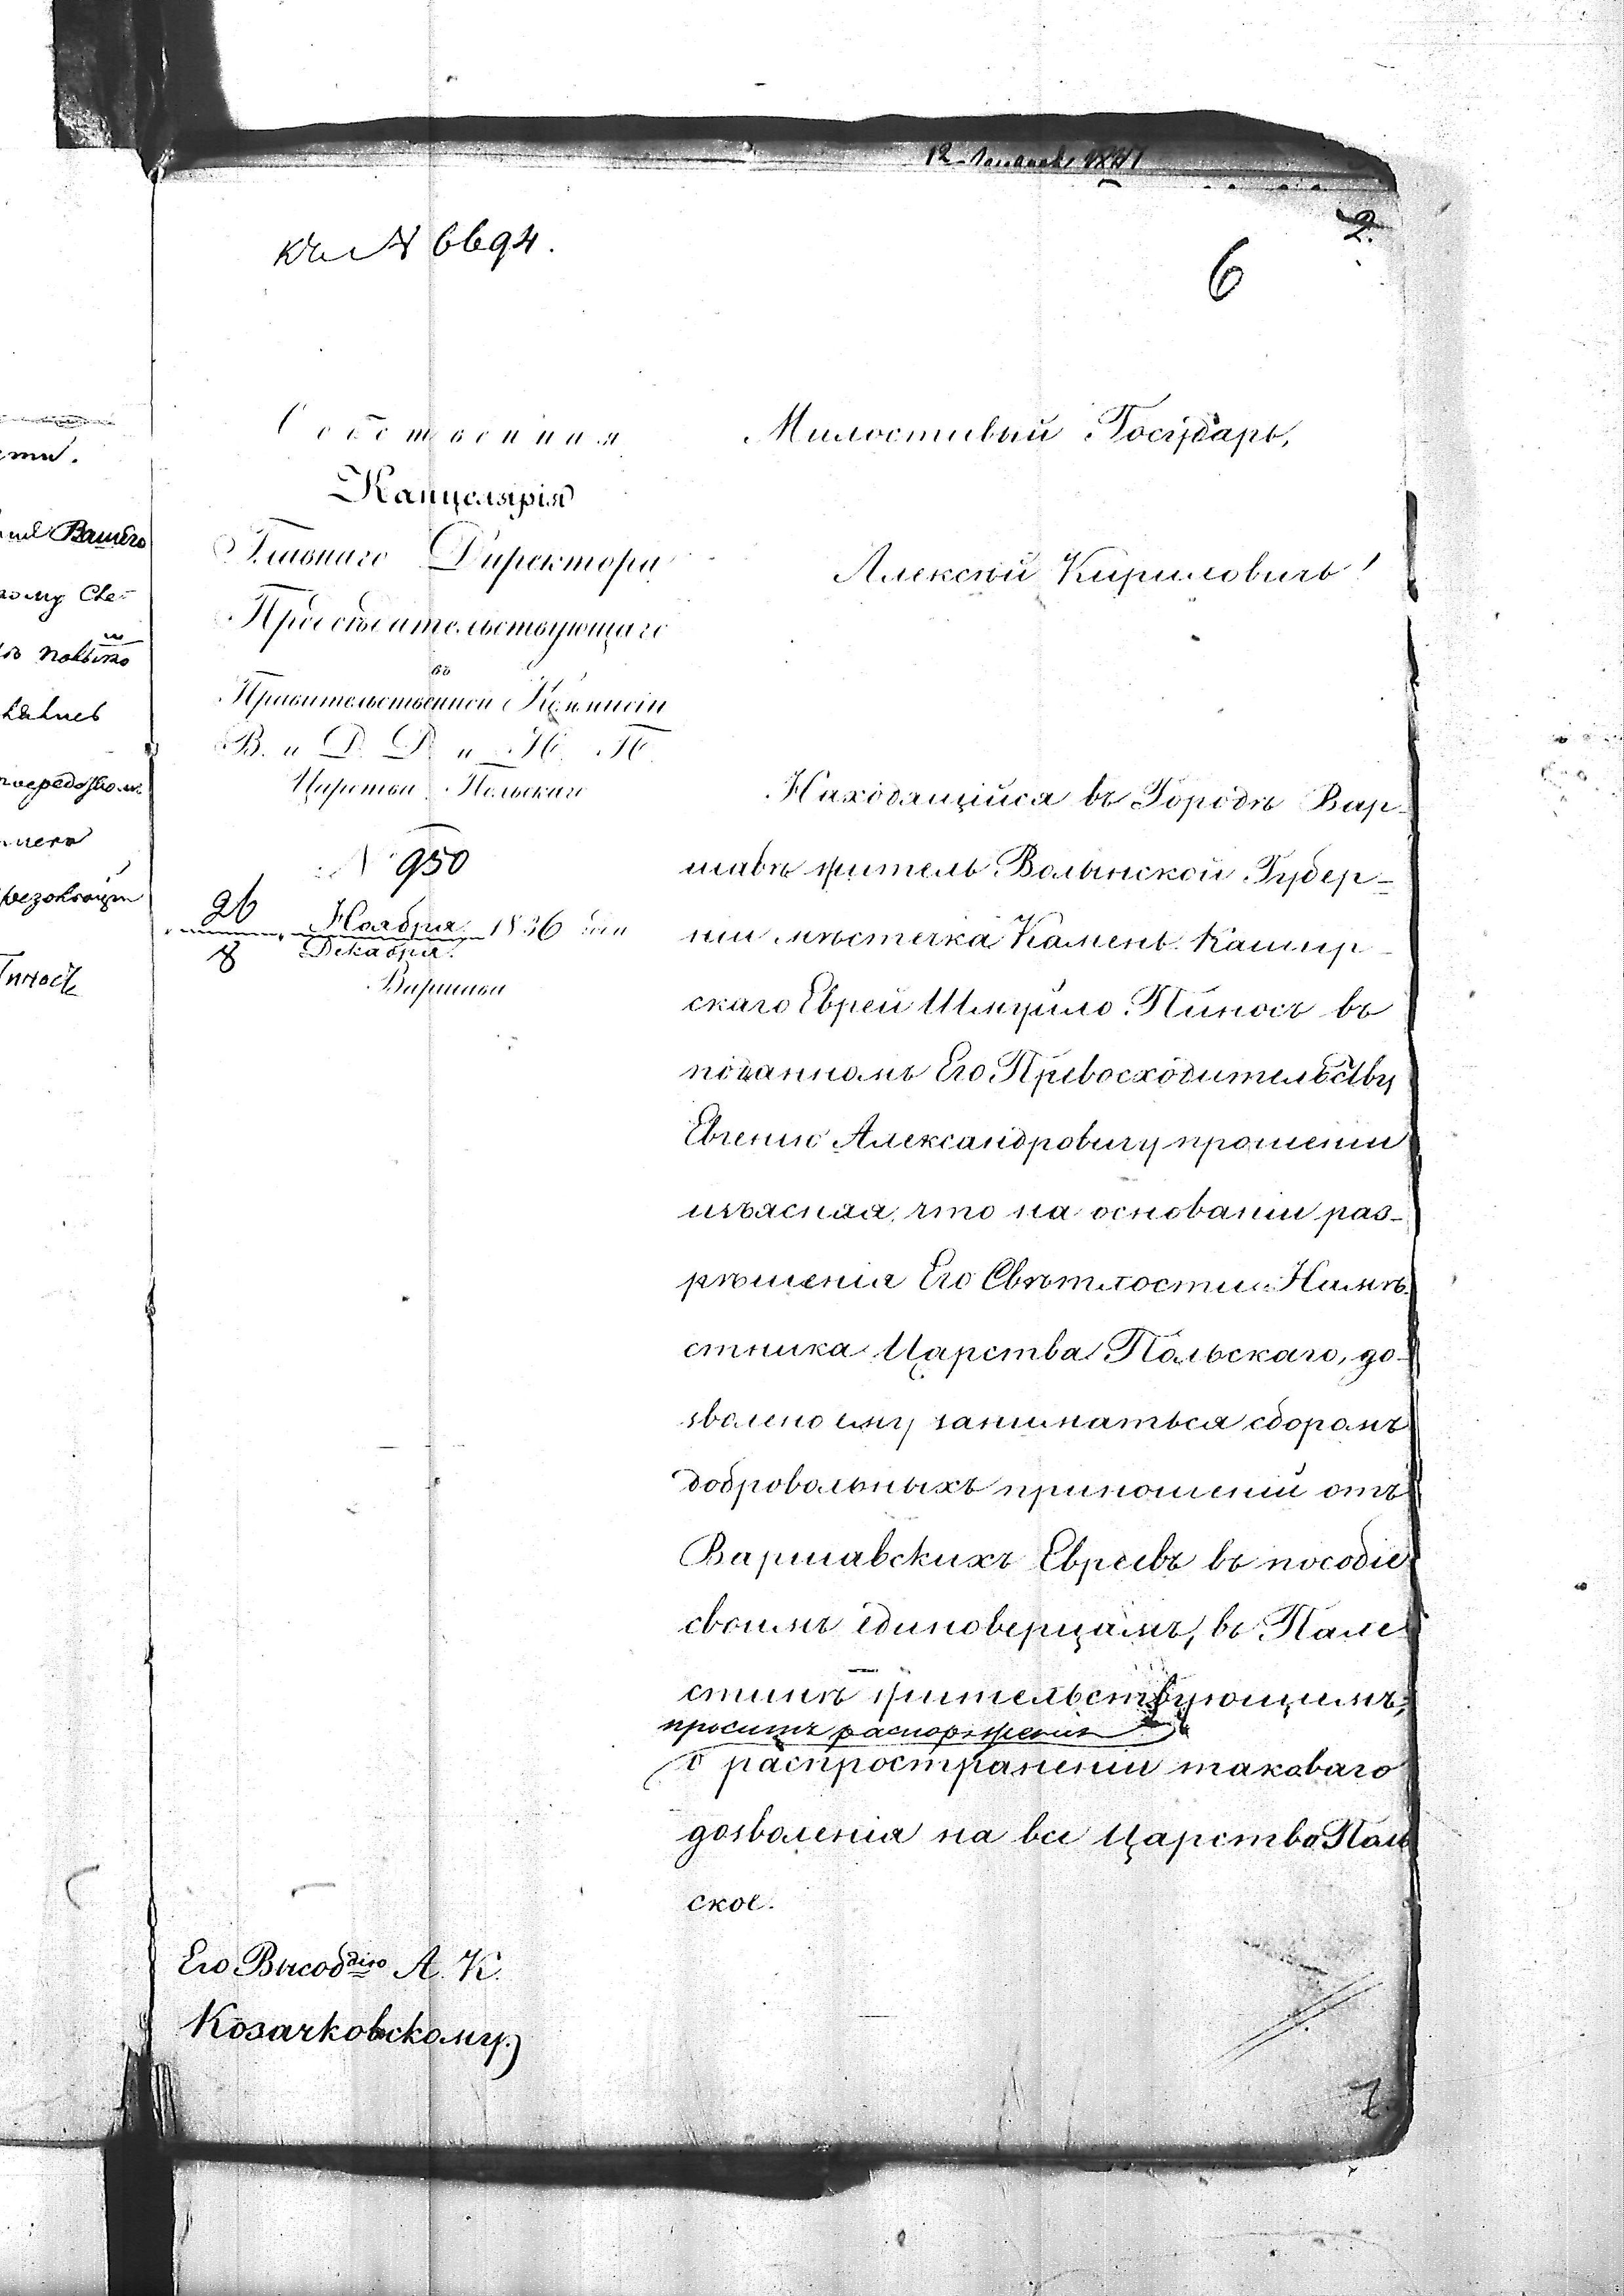 къ № 6694.
2.
6
Собственная
Канцелярія
Главнаго Директора
Предсѣдательствующаго
въ
Правительственной Коммисіи
В. и Д. Д. и Н. П.
Царства Польскаго
№ 950
26 Ноября 1836
8 Декабря
Варшава
Милостивый Государь,
Алексѣй Кириловичь!
Находящійся въ Городѣ Вар-
шавѣ житель Волынской Губер-
ніи мѣстечка Камень-Кашир-
скаго Еврей Шмуйло Пиносъ въ
поданномъ Его Превосходительству
Евгенію Александровичу прошеніи
изъясняя, что на основаніи раз-
рѣшенія Его Свѣтлости Намѣ-
стника Царства Польскаго, до-
зволено ему заниматься сборомъ
добровольныхъ приношеній отъ
Варшавскихъ Евреевъ въ пособіе
своимъ единоверцамъ, въ Пале-
стинѣ жительствующимъ,
проситъ распоряженія
о распространеніи таковаго
дозволенія на все Царство Поль
ское.
Его Высоб<sup>дію</sup> А. К.
Козачковскому.
7.